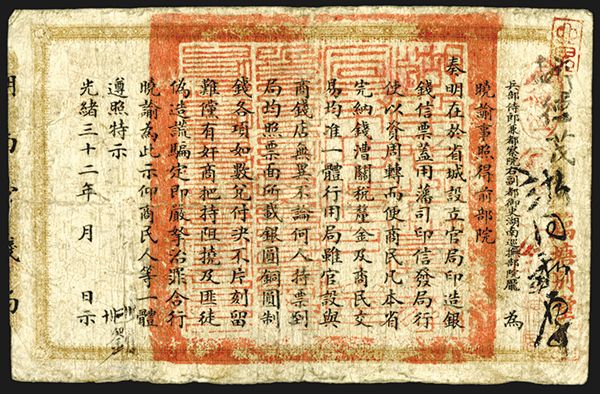 兵部侍郎兼都察院右副都御史湖南巡撫部院龐 為
曉諭事照得前部院
奏明在於省城設立官局印造銀
錢信票蓋用藩司印信發局行
使以資周轉而便商民凡本省
完納錢漕關稅釐金及商民交
易均准一體行用局雖官設與
商錢店無異不論何人持票到
局均照票面所載銀圓銅圓制
錢各項如數兌付決不片刻留
難儻有奸商把持阻撓及匪徒
偽造謊騙定即嚴拏治罪合行
曉諭為此示仰商民人等一體
遵照特示
光緒三十二年 月 日示